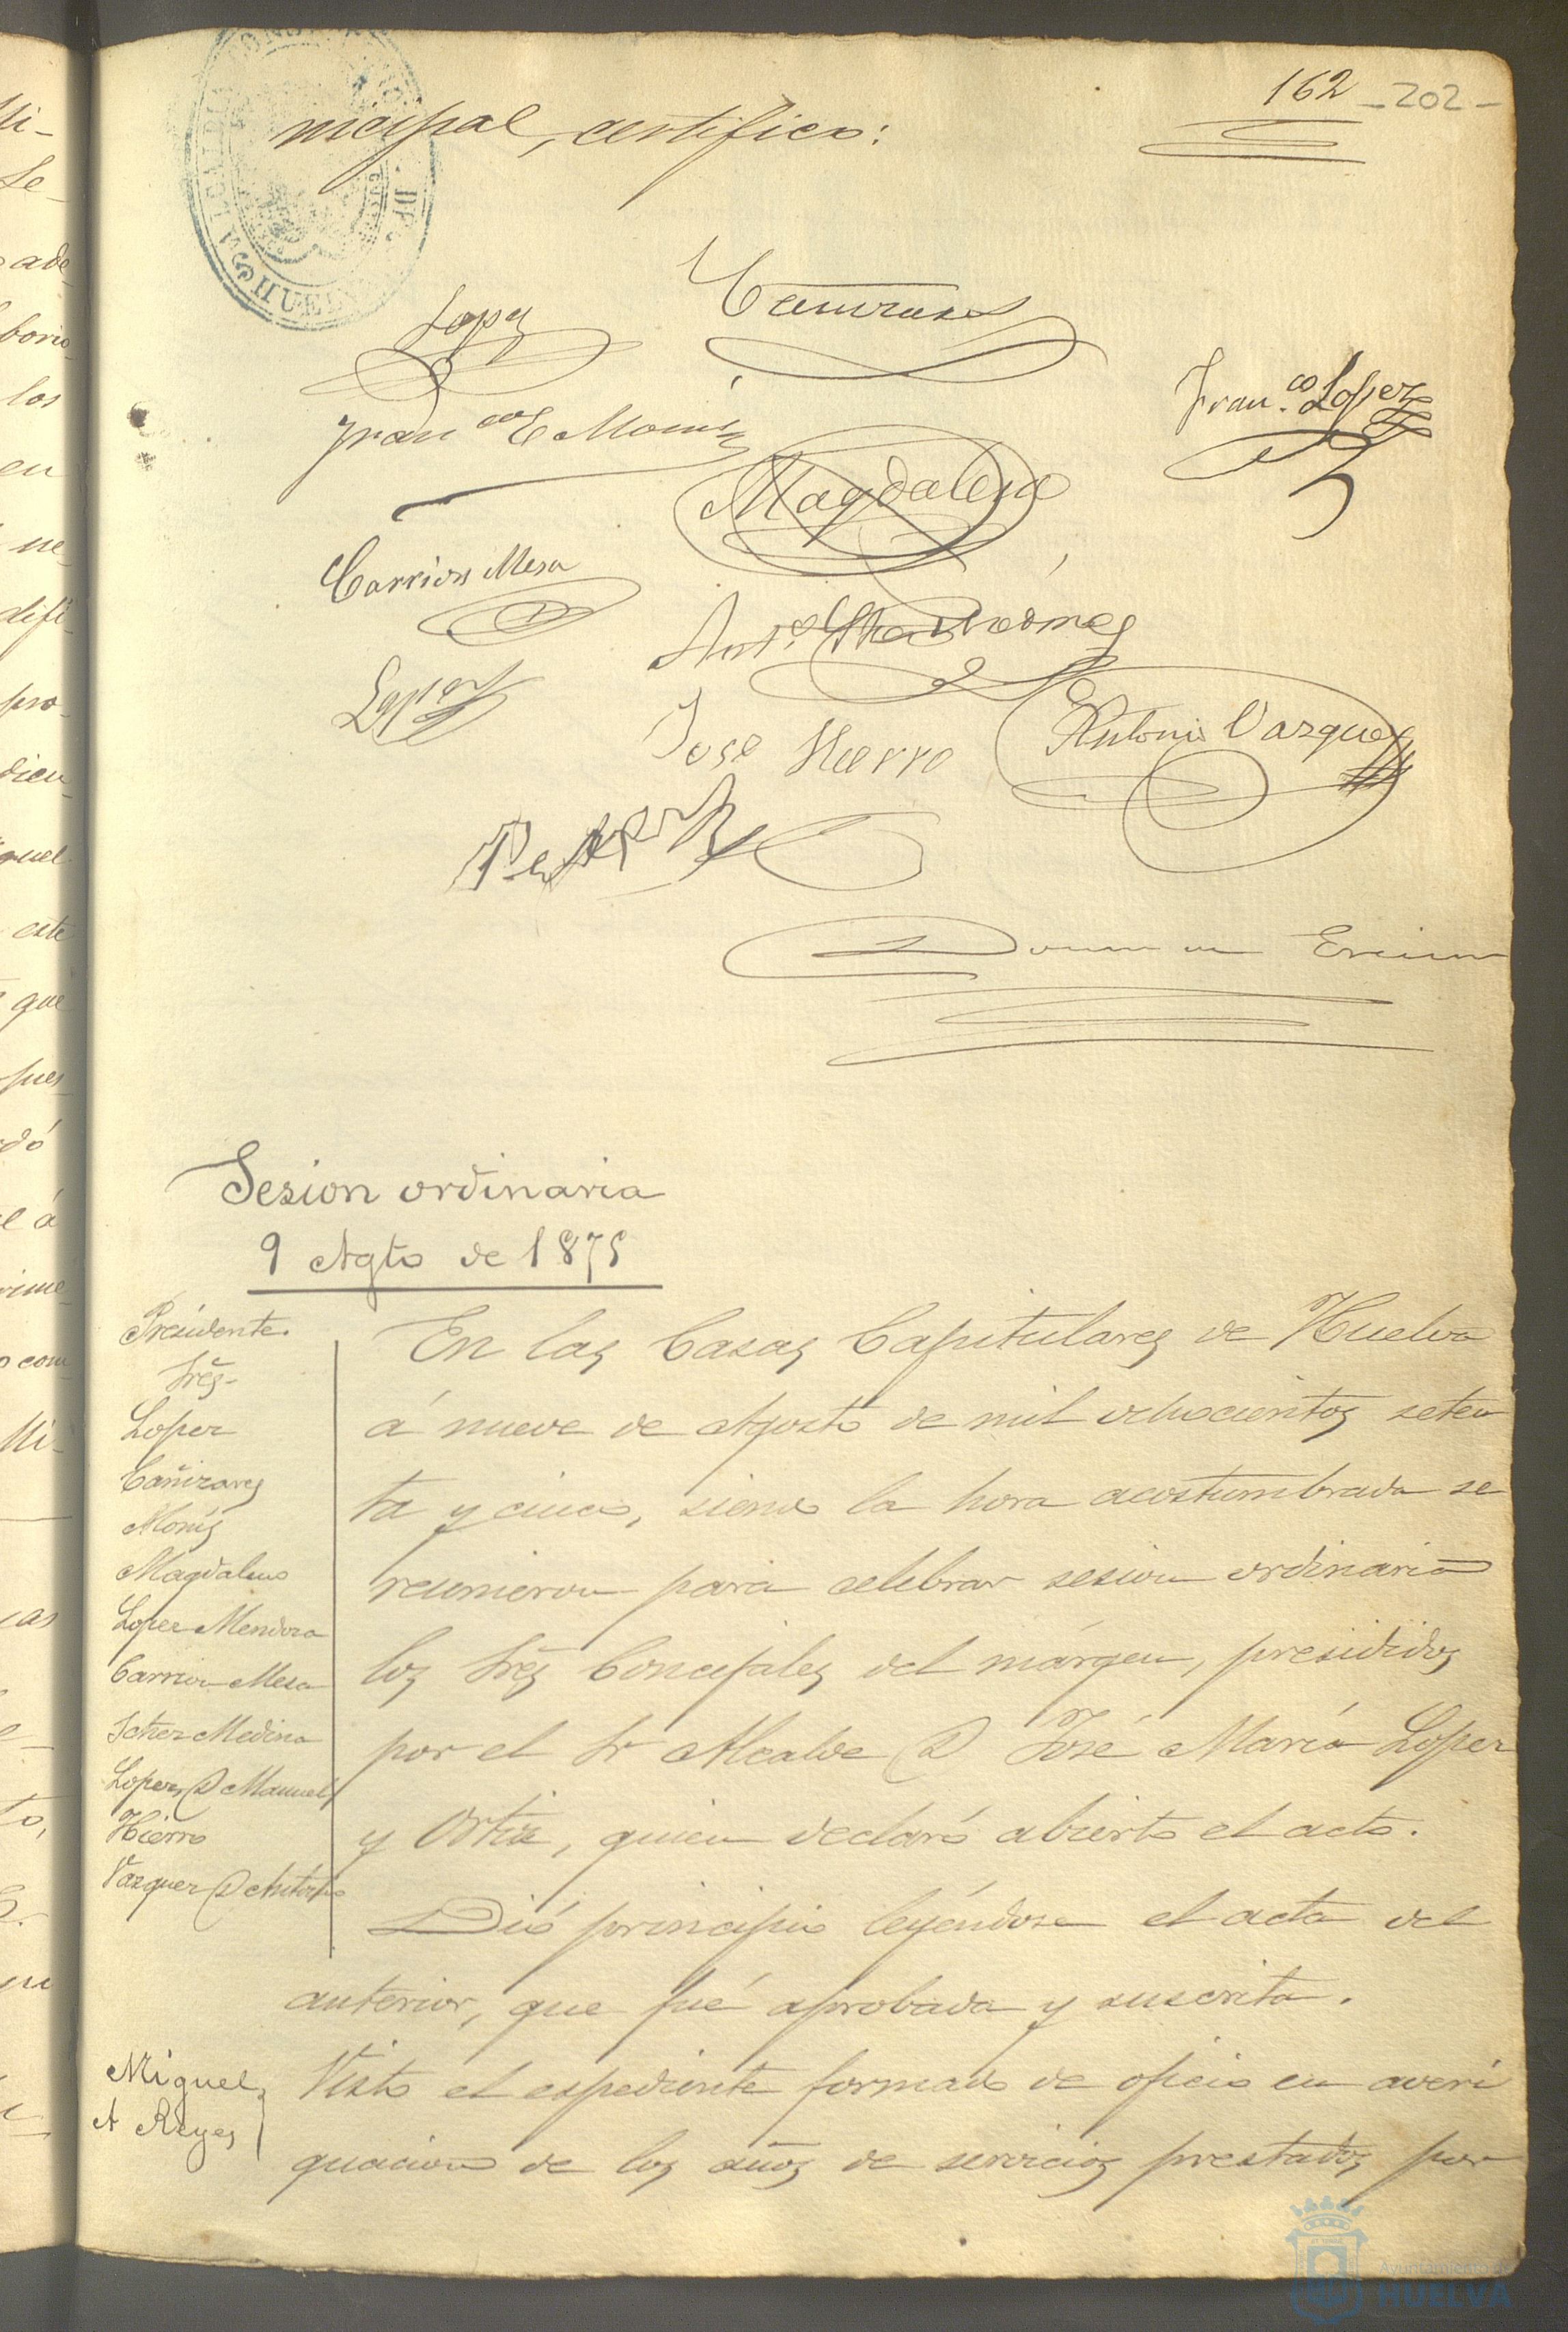 162 - 202 -
nicipal, certifico:
Lopez
Franco. Lopez
Franco E Monis
Magdalena
Carrion Mesa
Lopez
Jose Hierro
Antonio Vazquez
Sesion ordinaria
9 Agto de 1875
Presidente.
Sres.
Lopez
Cañizares
Monis
Magdaleno
Lopez Mendoza
Carrion Mesa
Schez Medina
Lopez, D Manuel
Hierro
Vazquez D Antonio
En las Casas Capitulares de Huelva
á nueve de Agosto de mil ochocientos seten
ta y cinco, siendo la hora acostumbrada se
reunieron para celebrar sesion ordinaria
los Sres Concejales del márgen, presididos
por el Sr Alcalde D José María Lopez
y Ortiz, quien declaró abierto el acto.
Dió principio leyéndose el acta del
anterior, que fué aprobada y suscrita.
Miguel
A Reyes
Visto el espediente formado de oficio en averi
guacion de los años de servicios prestados por
Ayuntamiento de
HUELVA